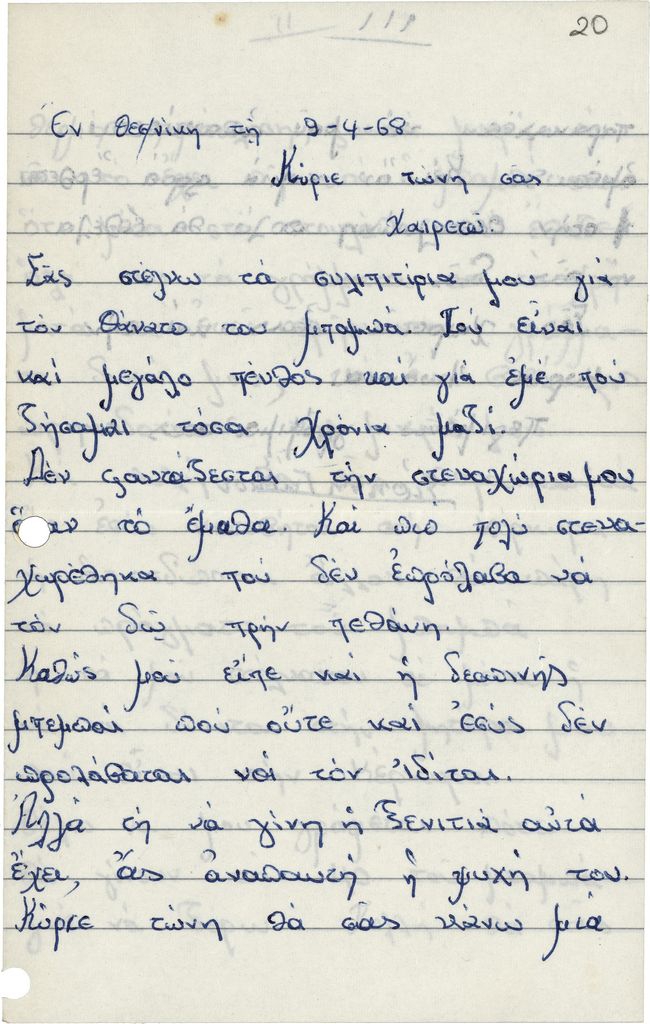 20
Ἐν Θεσ/νίκη τῇ 9-4-68
Κύριε τώνη σας
Χαιρετώ.
Σᾶς στέλνω τά συλιπιτίρια μου γιά
τόν θάνατο του μπαμπά. Πού εἶναι
καί μεγάλο πένθος καί γιά ἐμέ πού
ζήσαμαι τόσα χρόνια μαζί.
Δέν φαντάζεσται τήν στεναχώρια μου
ὅταν τό ἔμαθα. Καί πιό πολύ στενα-
χωρέθηκα πού δέν ἐπρόλαβα νά
τόν δῶ πρήν πεθάνη.
Καθώς μού εἶπε καί ἡ δεσπινής
μπεμπού πού οὔτε καί ἐσύς δέν
προλάβαται νά τόν ἰδίται.
Ἀλλά τή νά γίνη ἡ ξενιτιά αὐτά
ἔχει, ἄς ἀναπαυτή ἡ ψυχή του.
Κύριε τώνη θά σᾶς κάνω μιά